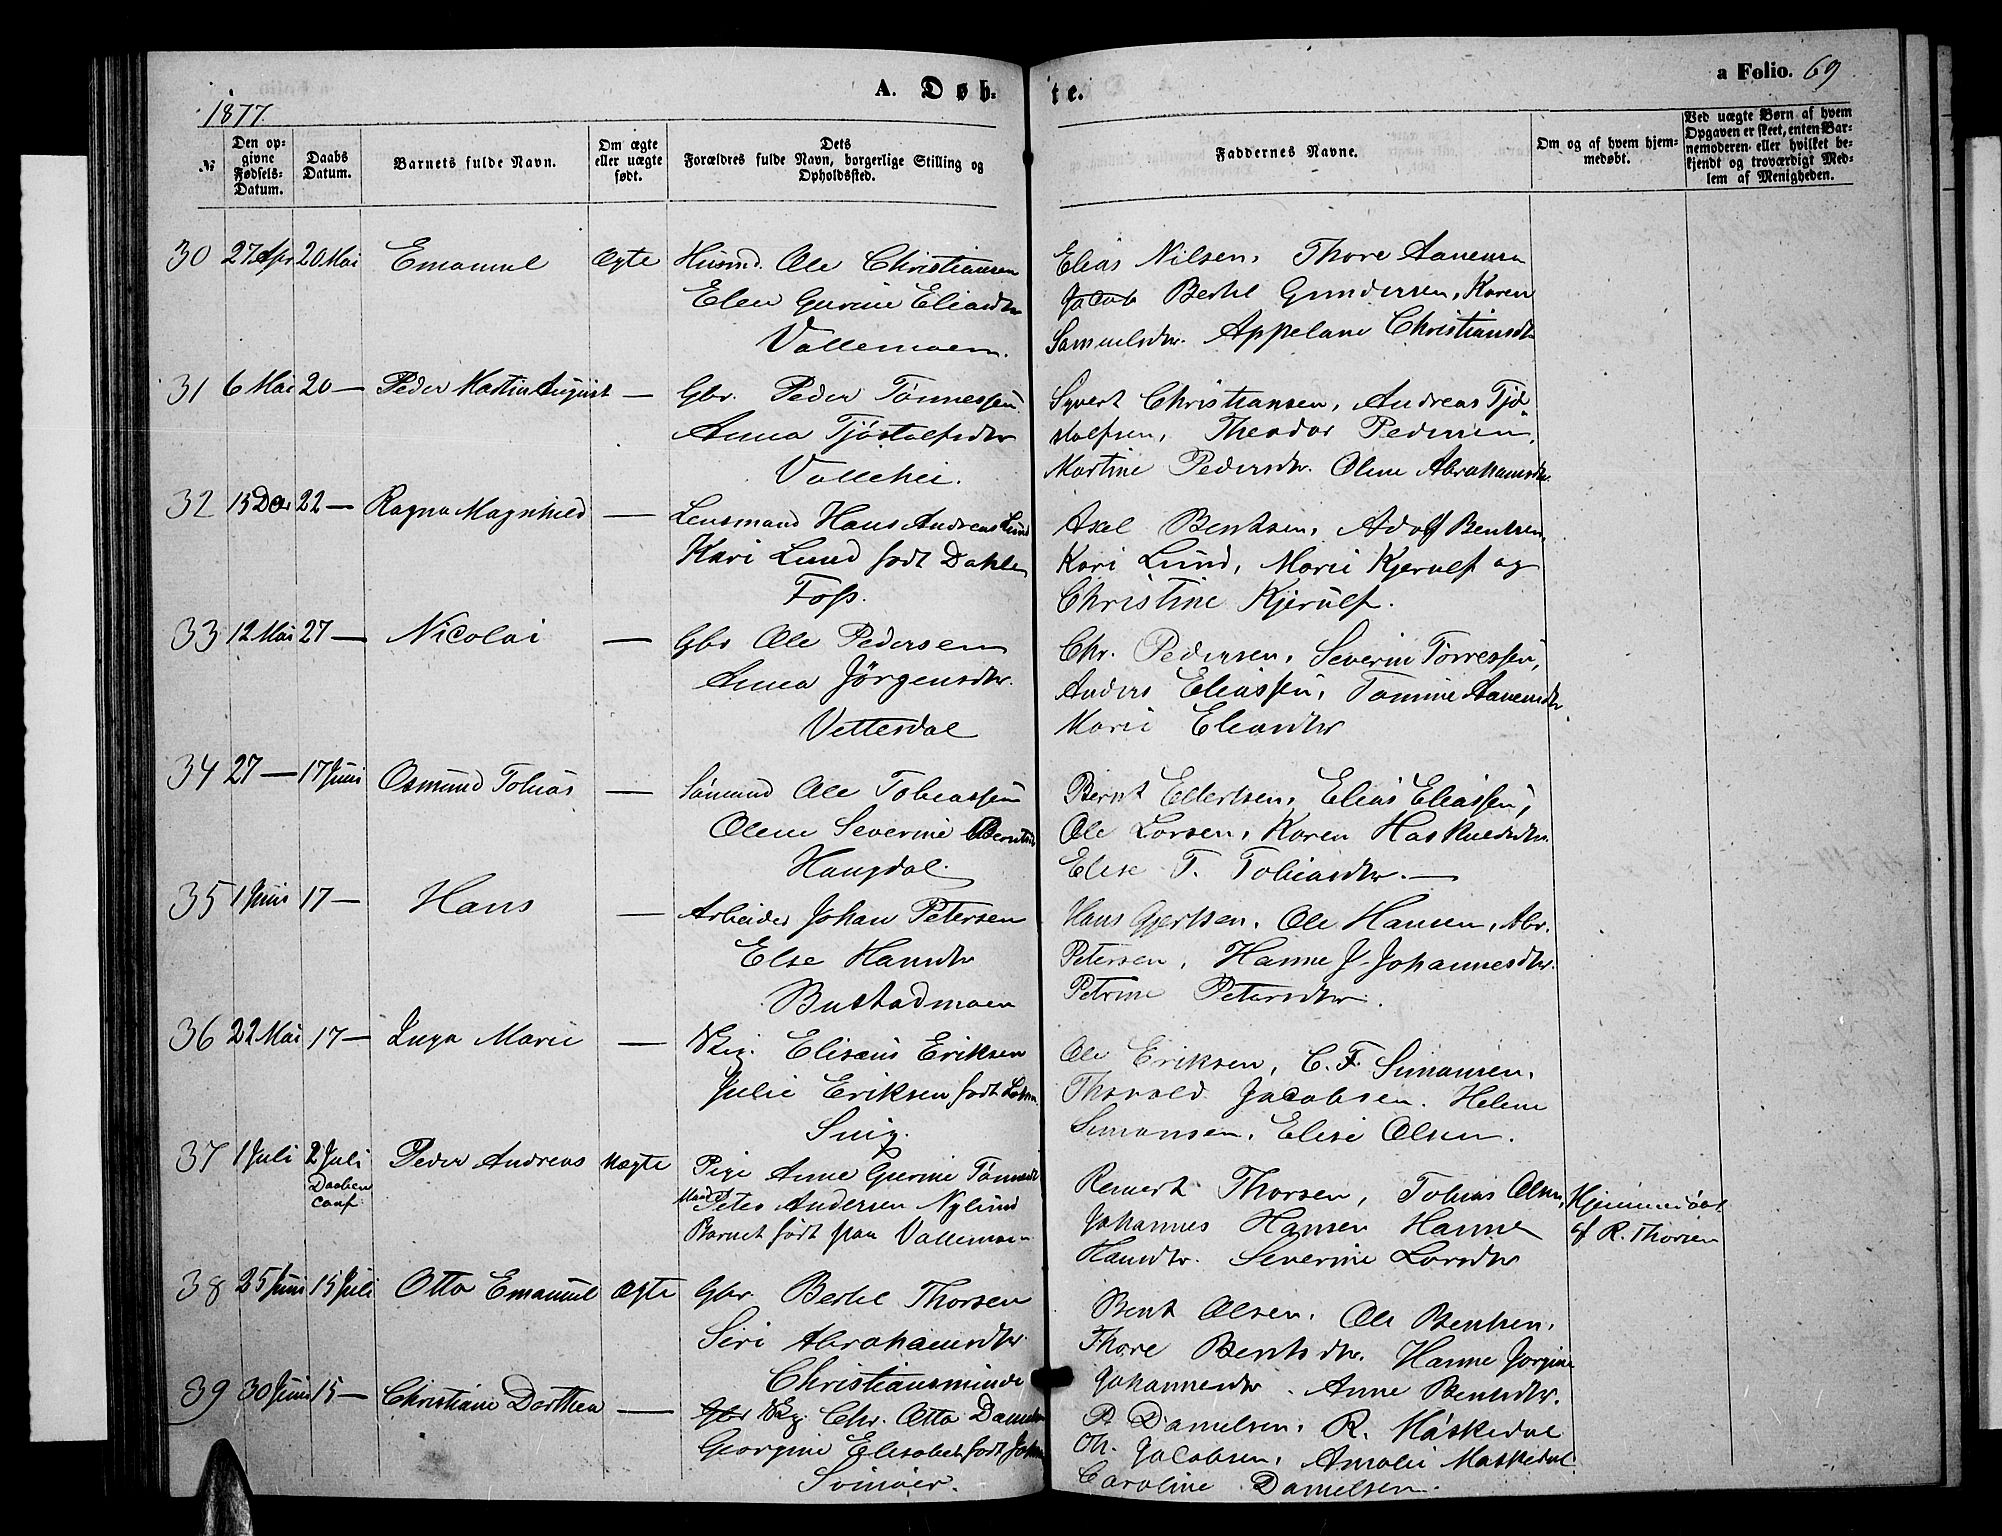 A. Døb-
te.
a Folio. 69
1877
№
Den op-
givne
Fødsels-
Datum.
Daabs
Datum.
Barnets fulde Navn.
Om ægte
eller uægte
født.
Dets
Forældres fulde Navn, borgerlige Stilling og
Opholdssted.
Faddernes Navne.
Om og af hvem hjem-
medøbt.
Ved uægte Børn af hvem
Opgaven er skeet, enten Bar-
nemoderen eller hvilket be-
kjendt og troværdigt Med-
lem af Menigheden.
30 27 Apr 20 Mai Emanuel Ægte Husmd. Ole Christiansen
Elen Gurine Eliasdtr
Vollemoen.
Elias Nilsen, Thore Aanensen
Jacob Bertel Gundersen, Karen
Samuelsdtr. Appelane Christiansdtr
31 6 Mai 20 — Peder Martin August — Gbr. Peder Tønnessen
Anna Tjøstolfsdtr
Vollehei.
Syvert Christiansen, Andreas Tjø-
stolfsen, Theodor Pedersen,
Martine Pedersdtr. Olene Abrahamsdtr.
32 15 22 — Ragna Magnhild — Lensmand Hans Andreas Lund
Kari Lund født Dahle
Foss.
Axel Bentsen, Adolf Bentsen,
Kari Lund, Marie Kjerulf og
Christine Kjerulf.
33 12 Mai 27 — Nicolai — Gbr Ole Pedersen
Anna Jørgensdtr.
Vettesdal
Chr. Pedersen, Severin Torressen,
Anders Eliassen, Tomine Aanensdtr.
Marie Eliasdtr
34 27 — 17 Juni Osmund Tobias — Sømand Ole Tobiassen
Olene Severine
Haugdal.
Bernt Ellertsen, Elias Eliassen,
Ole Larsen, Karen
Elise T. Tobiasdtr. —
35 1 Juni 17 — Hans — Arbeider Johan Petersen
Else Hansdtr
Bustadmoen
Hans Gjertsen, Ole Hansen, Abr.
Petersen, Hanne J. Johannesdtr.
Petrine Petersdtr.
36 22 Mai 17 — Inga Marie — Elisæus Eriksen
Julie Eriksen født
Snig.
Ole Eriksen, C. F. Simonsen,
Thorvald Jacobsen. Helene
Simonsen, Elise Olsen.
37 1 Juli 2 Juli Peder Andreas Uægte Pige Anne Gurine Tønnesdtr
Daaben
conf.
Peter Andersen Nylund
Barnet født paa Vollemoen
Reinert Thorsen, Tobias Olsen,
Johannes Hansen Hanne
Hansdtr. Severine Larsdtr
Hjemmedøbt
af R. Thorsen
38 25 Juni 15 Juli Otto Emanuel Ægte Gbr. Bertel Thorsen
Siri Abrahamsdtr.
Christiansminde
Bent Olsen, Ole Bentsen,
Thore Bentsdtr. Hanne Jorgine
Johannesdtr. Anne Bentsdtr.
39 30 Juni 15 — Christiane Dorthea — Gbr Chr. Otto Danielsen
Georgine Elisabet født
Svinøer.
P Danielsen, R. Høskedal
Oli. Jacobsen, Amalie
Caroline Danielsen.